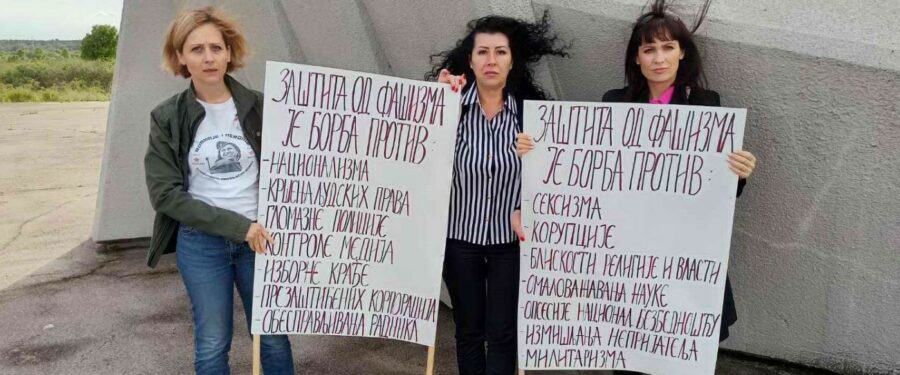 ЗАШТИТА ОД ФАШИЗМА
ЈЕ БОРБА ПРОТИВ:
-НАЦИОНАЛИЗМА
-КРШЕЊА ЉУДСКИХ ПРАВА
-ГЛОМАЗНЕ ПОЛИЦИЈЕ
-КОНТРОЛЕ МЕДИЈА
-ИЗБОРНЕ КРАЂЕ
-ПРЕЗАШТИЋЕНИХ КОРПОРАЦИЈА
-ОБЕСПРАВЉИВАЊА РАДНИКА
ЗАШТИТА ОД ФАШИЗМА
ЈЕ БОРБА ПРОТИВ:
-СЕКСИЗМА
-КОРУПЦИЈЕ
-БЛИСКОСТИ РЕЛИГИЈЕ И ВЛАСТИ
-ОМАЛОВАЖАВАЊА НАУКЕ
-ОПСЕСИЈЕ НАЦИОНАЛ БЕЗБЕДНОШЋУ
-ИЗМИШЉАЊА НЕПРИЈАТЕЉА
-МИЛИТАРИЗМА